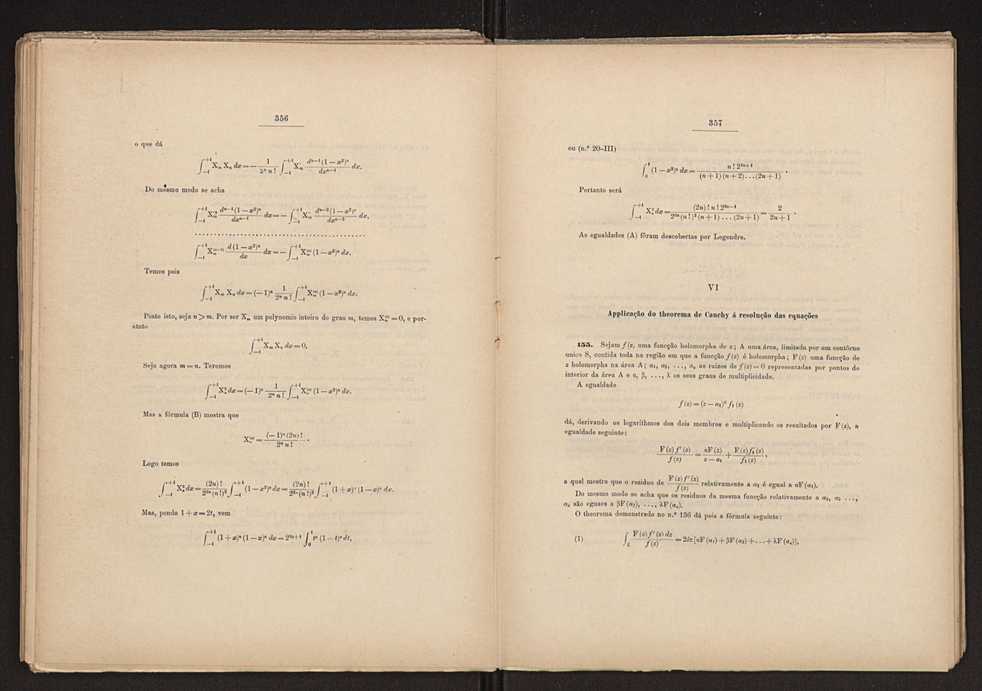 356
o que dá
∫₋₁⁺¹ Xₘ Xₙ dx = − 1/(2ⁿ n!) ∫₋₁⁺¹ X′ₘ dⁿ⁻¹(1 − x²)ⁿ/dxⁿ⁻¹ dx.
Do mesmo modo se acha
dx = −
∫₋₁⁺¹ d(1 − x²)ⁿ/dx dx = − ∫₋₁⁺¹ (1 − x²)ⁿ dx.
Temos pois
∫₋₁⁺¹ Xₘ Xₙ dx = (−1)ⁿ 1/(2ⁿ n!) ∫₋₁⁺¹ Xₘ⁽ⁿ⁾ (1 − x²)ⁿ dx.
Posto isto, seja n > m. Por ser Xₘ um polynomio inteiro do grau m, temos Xₘ⁽ⁿ⁾ = 0, e por-
tanto
∫₋₁⁺¹ Xₘ Xₙ dx = 0,
Seja agora m = n. Teremos
∫₋₁⁺¹ Xₙ² dx = (−1)ⁿ 1/(2ⁿ n!) ∫₋₁⁺¹ Xₙ⁽ⁿ⁾ (1 − x²)ⁿ dx.
Mas a fórmula (B) mostra que
Xₙ⁽ⁿ⁾ = (−1)ⁿ (2n)!/(2ⁿ n!) .
Logo temos
∫₋₁⁺¹ Xₙ² dx = (2n)!/(2²ⁿ (n!)²) ∫₋₁⁺¹ (1 − x²)ⁿ dx = (2n)!/(2²ⁿ (n!)²) ∫₋₁⁺¹ (1 + x)ⁿ (1 − x)ⁿ dx.
Mas, pondo 1 + x = 2t, vem
∫₋₁⁺¹ (1 + x)ⁿ (1 − x)ⁿ dx = 2²ⁿ⁺¹ ∫₀¹ tⁿ (1 − t)ⁿ dt,
357
ou (n.º 20-III)
(1 − x²)ⁿ dx = n! 2²ⁿ⁺¹/((n + 1)(n + 2)...(2n + 1)) .
Portanto será
∫₋₁⁺¹ Xₙ² dx = (2n)! n! 2²ⁿ⁺¹/(2²ⁿ (n!)² (n + 1)...(2n + 1)) = 2/(2n + 1) .
As egualdades (A) fôram descobertas por Legendre.
VI
Applicação do theorema de Cauchy á resolução das equações
155. Sejam f(z, uma funcção holomorpha de z; A uma área, limitada por um contôrno
unico S, contida toda na região em que a funcção f(z) é holomorpha; F(z) uma funcção de
z holomorpha na área A; a₁, a₂, ..., aₙ as raizes de f(z) = 0 representadas por pontos do
interior da área A e α, β, ..., λ os seus graus de multiplicidade.
A egualdade
f(z) = (z − a₁)ᵅ f₁(z)
dá, derivando os logarithmos dos dois membros e multiplicando os resultados por F(z), a
egualdade seguinte:
F(z) f′(z)/f(z) = αF(z)/(z − a₁) + F(z) f₁′(z)/f₁(z),
a qual mostra que o residuo de F(z) f′(z)/f(z) relativamente a a₁ é egual a αF(a₁).
Do mesmo modo se acha que os residuos da mesma funcção relativamente a a₂, a₃ ...,
aₙ são eguaes a βF(a₂), ..., λF(aₙ).
O theorema demonstrado no n.º 136 dá pois a fórmula seguinte:
(1) ∫ₛ F(z) f′(z) dz/f(z) = 2iπ [αF(a₁) + βF(a₂) + ... + λF(aₙ)],